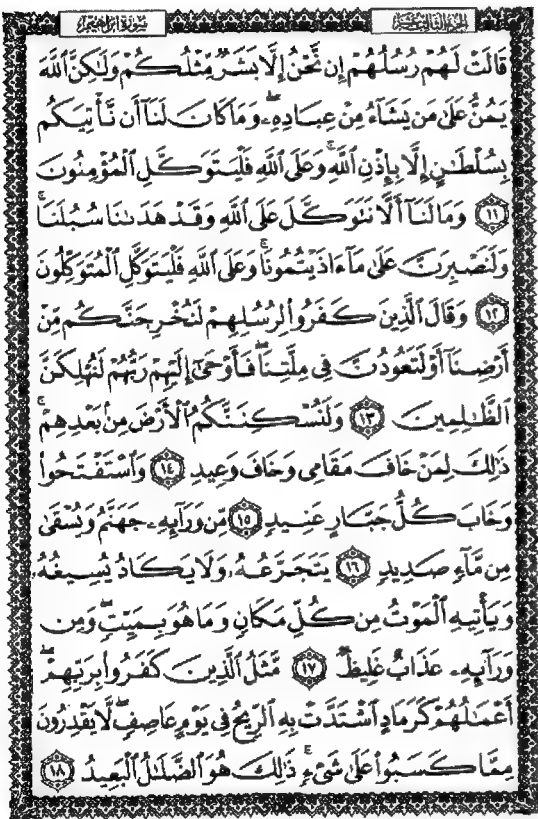 الجزء الثالث عشر
سورة إبراهيم
قَالَتْ لَهُمْ رُسُلُهُمْ إِن نَّحْنُ إِلَّا بَشَرٌ مِّثْلُكُمْ وَلَٰكِنَّ ٱللَّهَ
يَمُنُّ عَلَىٰ مَن يَشَآءُ مِنْ عِبَادِهِۦ ۖ وَمَا كَانَ لَنَآ أَن نَّأْتِيَكُم
بِسُلْطَٰنٍ إِلَّا بِإِذْنِ ٱللَّهِ ۚ وَعَلَى ٱللَّهِ فَلْيَتَوَكَّلِ ٱلْمُؤْمِنُونَ
١١ وَمَا لَنَآ أَلَّا نَتَوَكَّلَ عَلَى ٱللَّهِ وَقَدْ هَدَىٰنَا سُبُلَنَا ۚ
وَلَنَصْبِرَنَّ عَلَىٰ مَآ ءَاذَيْتُمُونَا ۚ وَعَلَى ٱللَّهِ فَلْيَتَوَكَّلِ ٱلْمُتَوَكِّلُونَ
١٢ وَقَالَ ٱلَّذِينَ كَفَرُوا۟ لِرُسُلِهِمْ لَنُخْرِجَنَّكُم مِّنْ
أَرْضِنَآ أَوْ لَتَعُودُنَّ فِى مِلَّتِنَا ۖ فَأَوْحَىٰٓ إِلَيْهِمْ رَبُّهُمْ لَنُهْلِكَنَّ
ٱلظَّٰلِمِينَ ١٣ وَلَنُسْكِنَنَّكُمُ ٱلْأَرْضَ مِنۢ بَعْدِهِمْ ۚ
ذَٰلِكَ لِمَنْ خَافَ مَقَامِى وَخَافَ وَعِيدِ ١٤ وَٱسْتَفْتَحُوا۟
وَخَابَ كُلُّ جَبَّارٍ عَنِيدٍ ١٥ مِّن وَرَآئِهِۦ جَهَنَّمُ وَيُسْقَىٰ
مِن مَّآءٍ صَدِيدٍ ١٦ يَتَجَرَّعُهُۥ وَلَا يَكَادُ يُسِيغُهُۥ
وَيَأْتِيهِ ٱلْمَوْتُ مِن كُلِّ مَكَانٍ وَمَا هُوَ بِمَيِّتٍ ۖ وَمِن
وَرَآئِهِۦ عَذَابٌ غَلِيظٌ ١٧ مَّثَلُ ٱلَّذِينَ كَفَرُوا۟ بِرَبِّهِمْ ۖ
أَعْمَٰلُهُمْ كَرَمَادٍ ٱشْتَدَّتْ بِهِ ٱلرِّيحُ فِى يَوْمٍ عَاصِفٍ ۖ لَّا يَقْدِرُونَ
مِمَّا كَسَبُوا۟ عَلَىٰ شَىْءٍ ۚ ذَٰلِكَ هُوَ ٱلضَّلَٰلُ ٱلْبَعِيدُ ١٨